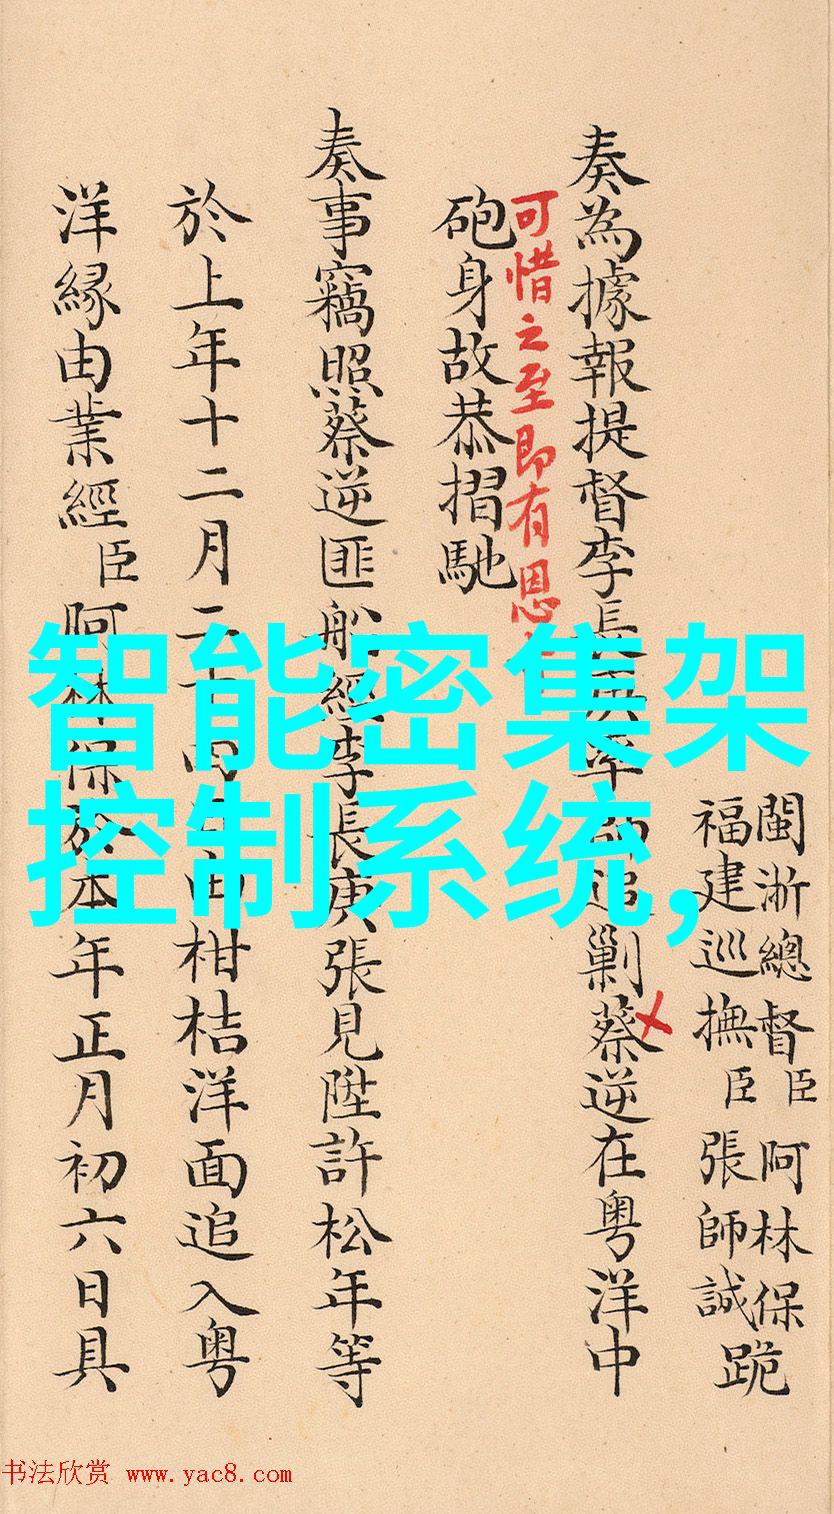 閩浙總督臣阿林保
福建巡撫臣張師誠跪
奏為據報提督李長庚追剿蔡逆在粵洋中
可惜之至即有恩
砲身故恭摺馳
奏事竊照蔡逆匪船經李長庚張見陞許松年等
於上年十二月二十由柑桔洋面追入粵
洋緣由業經臣阿林保於本年正月初六日具
智能密集架
控制系统,
书法欣赏 www.yac8.com